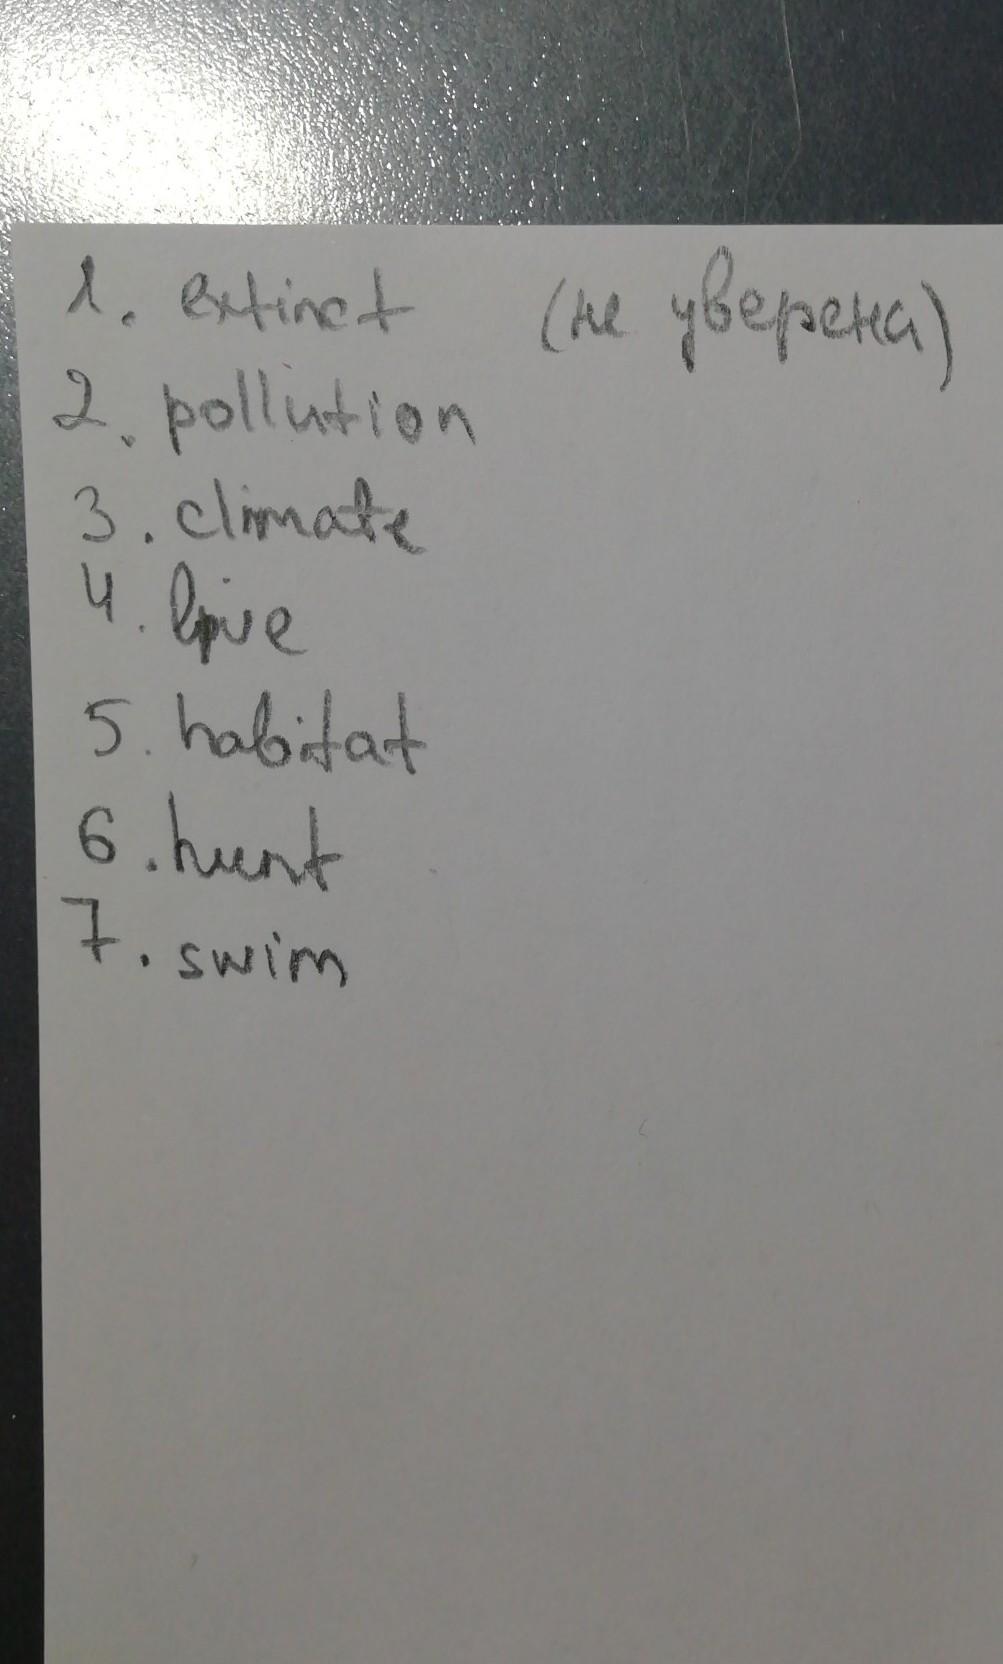 1. extinct (не уверена)
2. pollution
3. climate
4. live
5. habitat
6. hunt
7. swim